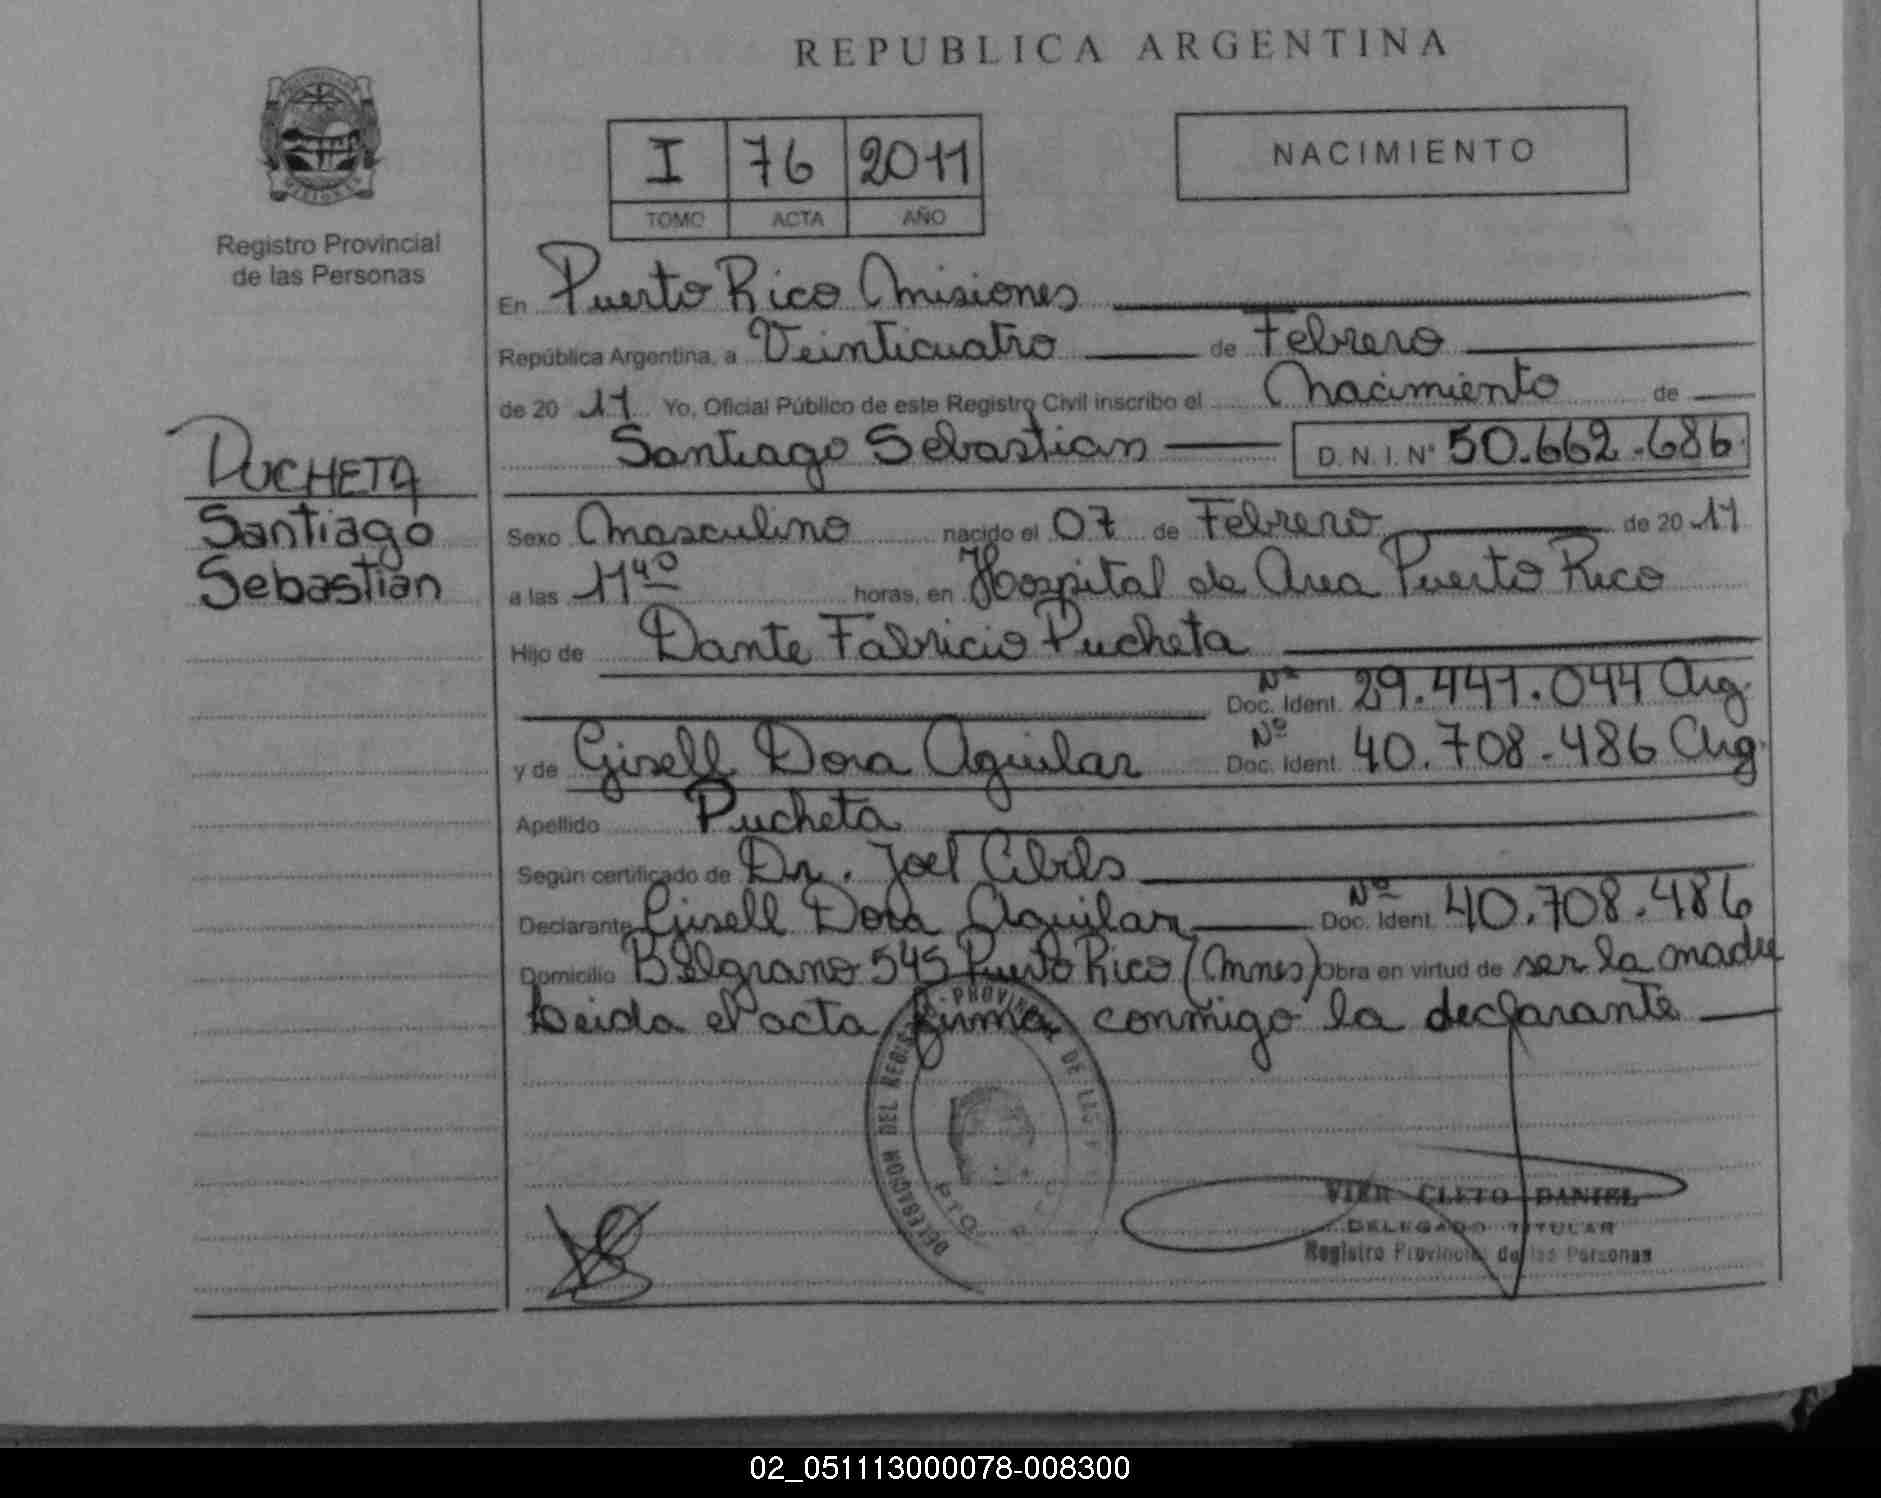 REPUBLICA ARGENTINA
I 76 2011
TOMO ACTA AÑO
NACIMIENTO
MISIONES
Registro Provincial
de las Personas
PUCHETA
Santiago
Sebastian
En Puerto Rico Misiones
República Argentina, a Veinticuatro de Febrero
de 20 11 Yo, Oficial Público de este Registro Civil inscribo el Nacimiento de
Santiago Sebastian D.N.I. Nº 50.662.686
Sexo Masculino nacido el 07 de Febrero de 20 11
a las 11 40 horas, en Hospital de Area Puerto Rico
Hijo de Dante Fabricio Pucheta
Nº Doc. Ident. 29.441.044 Arg.
y de Gisell Dora Aguilar Nº Doc. Ident. 40.708.486 Arg.
Apellido Pucheta
Según certificado de Dr. Joel
Declarante Gisell Dora Aguilar Nº Doc. Ident. 40.708.486
Domicilio Belgrano 545 Puerto Rico (Mnes) Obra en virtud de ser la madre
Leida el acta firma conmigo la declarante
DELEGACION DEL REGISTRO PROVINCIAL DE LAS
PTO.
VIER CLETO DANIEL
DELEGADO TITULAR
Registro Provincial de las Personas
02_051113000078-008300